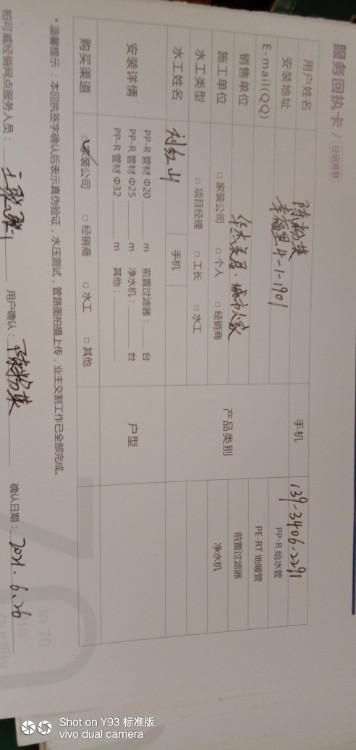 服务回执卡/经销商联
用户姓名 陈粉英 手机 139-3406-2291
安装地址 幸福里4-1-1901
E-mail(QQ)
销售单位 华杰美居·城市人家 产品类别 PP-R 给水管
施工单位 □ 家装公司 □ 个人 □ 经销商 PE-RT 地暖管
水工类型 □ 项目经理 □ 工长 □ 水工 前置过滤器
水工姓名 刘红山 手机 净水机
安装详情 PP-R 管材 Φ20 m 前置过滤器: 台 户型
PP-R 管材 Φ25 m 净水机: 台
PP-R 管材 Φ32 m 其他:
购买渠道 □ 家装公司 □ 经销商 □ 水工 □ 其他
* 温馨提示:本回执签字确认后表示真伪验证,水压测试,管路图拍摄上传,业主交割工作已全部完成。
柏可威经销网点服务人员: 用户确认: 陈粉英 确认日期: 2021.6.26
Shot on Y93 标准版
vivo dual camera